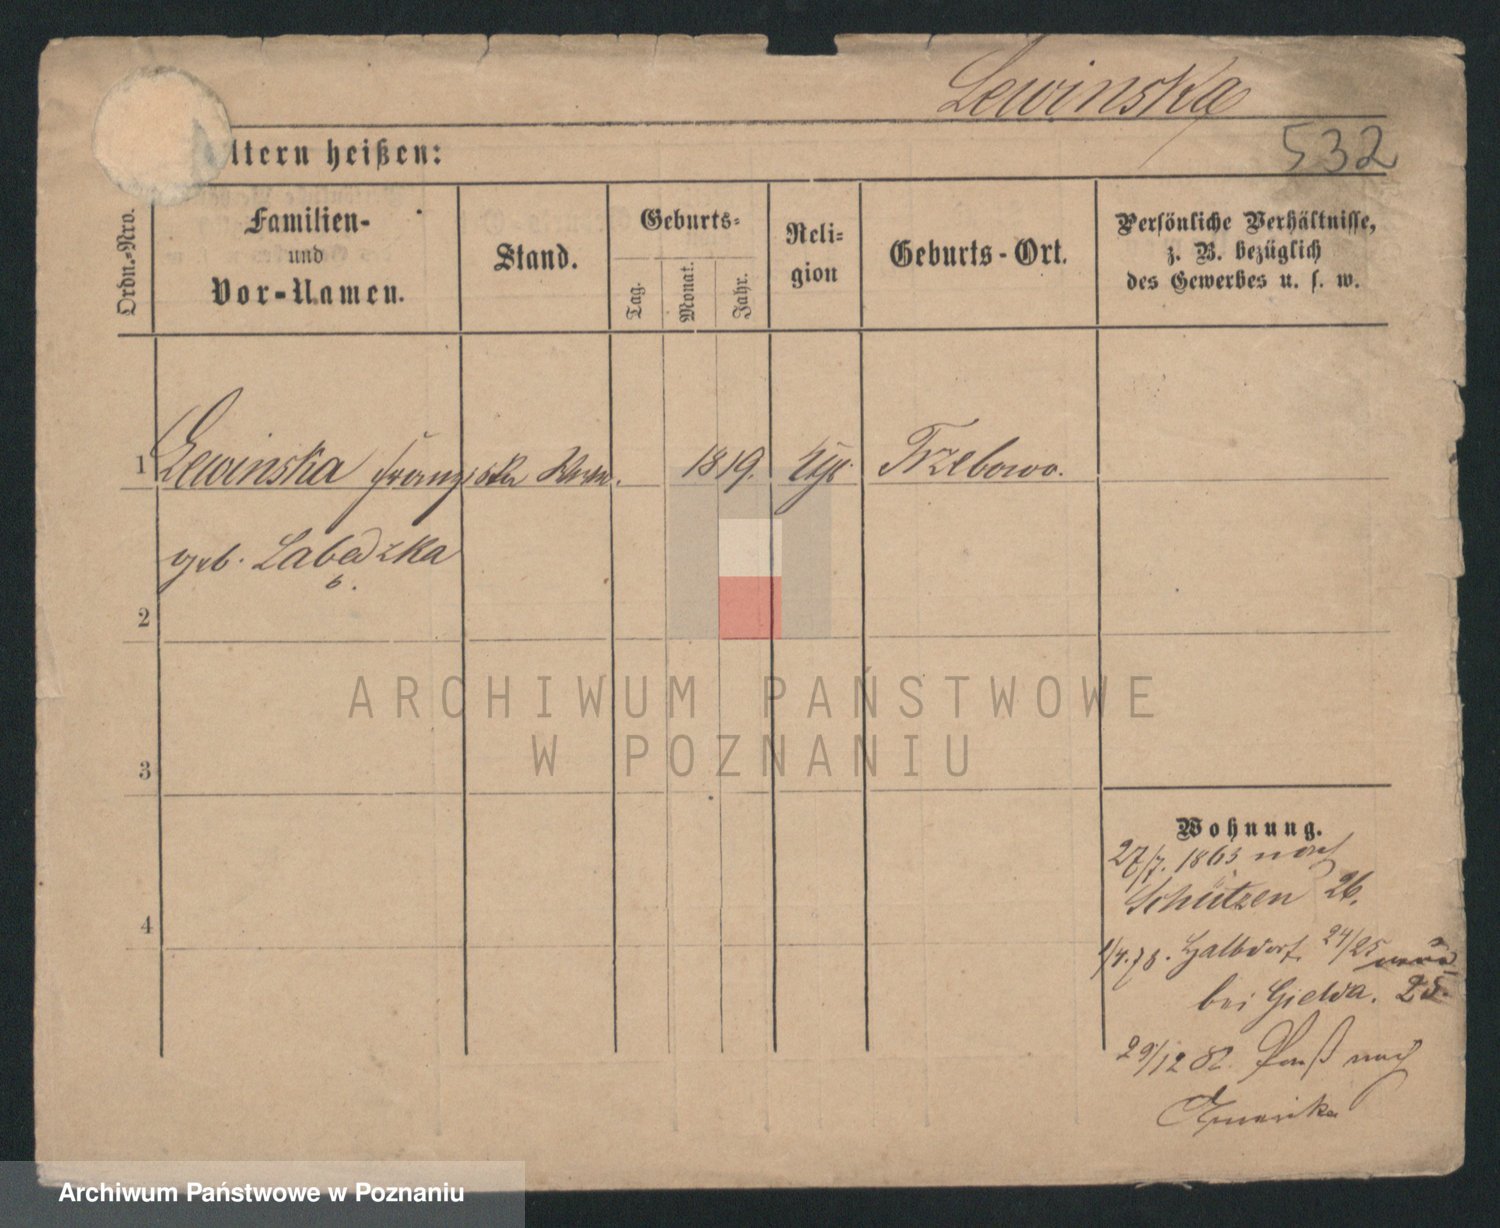 Lewinska
532
ltern heißen:
Ordn.-Nro.
Familien-
und
Vor-Namen.
Stand.
Geburts-
Tag.
Monat.
Jahr.
Reli-
gion
Geburts-Ort.
Persönliche Verhältnisse,
z. B. bezüglich
des Gewerbes u. s. w.
1 Lewinska Franziska 1819. Trzebowo.
geb. Labedzka
2
3
4
Wohnung.
27/7. 1863 nach
Schützen 26.
1/4.78. Halbdorf. 24/25
bei Gielda. 25.
29/12 82. Paß nach
Amerika
ARCHIWUM PAŃSTWOWE
W POZNANIU
Archiwum Państwowe w Poznaniu